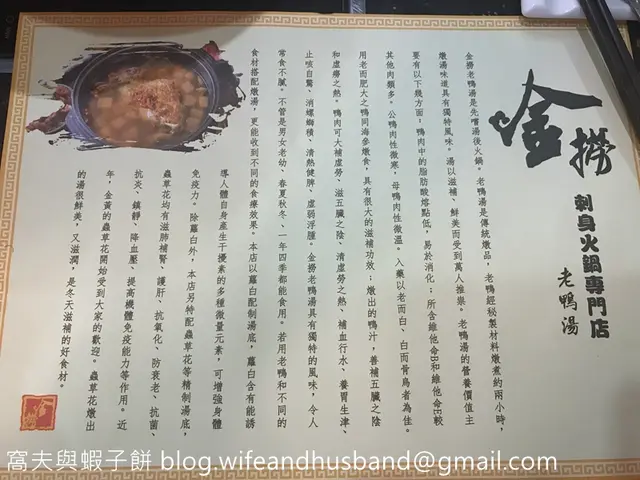 金撈
刺身火鍋專門店
老鴨湯
金撈老鴨湯是先嚐湯後火鍋。老鴨湯是傳統燉品，老鴨經秘製材料燉煮約兩小時，
燉湯味道具有獨特風味。湯以滋補、鮮美而受到萬人推崇。老鴨湯的營養價值主
要有以下幾方面，鴨肉中的脂肪酸熔點低，易於消化；所含維他命B和維他命E較
其他肉類多。公鴨肉性微寒，母鴨肉性微溫。入藥以老而白、白而骨烏者為佳。
用老而肥大之鴨同海參燉食，具有很大的滋補功效；燉出的鴨汁，善補五臟之陰
和虛癆之熱。鴨肉可大補虛勞、滋五臟之陰、清虛勞之熱、補血行水、養胃生津、
止咳自驚、消螺螄積、清熱健脾、虛弱浮腫。金撈老鴨湯具有獨特的風味，令人
常食不膩。不管是男女老幼、春夏秋冬、一年四季都能食用。若用老鴨和不同的
食材搭配燉湯，更能收到不同的食療效果。本店以蘿白配制湯底，蘿白含有能誘
導人體自身產生干擾素的多種微量元素，可增強身體
免疫力。除蘿白外，本店另特配蟲草花等精制湯底，
蟲草花均有滋肺補腎、護肝、抗氧化、防衰老、抗菌、
抗炎、鎮靜、降血壓、提高機體免疫能力等作用。近
年，金黃的蟲草花開始受到大家的歡迎。蟲草花燉出
的湯很鮮美，又滋潤，是冬天滋補的好食材。
窩夫與蝦子餅 blog.wifeandhusband@gmail.com